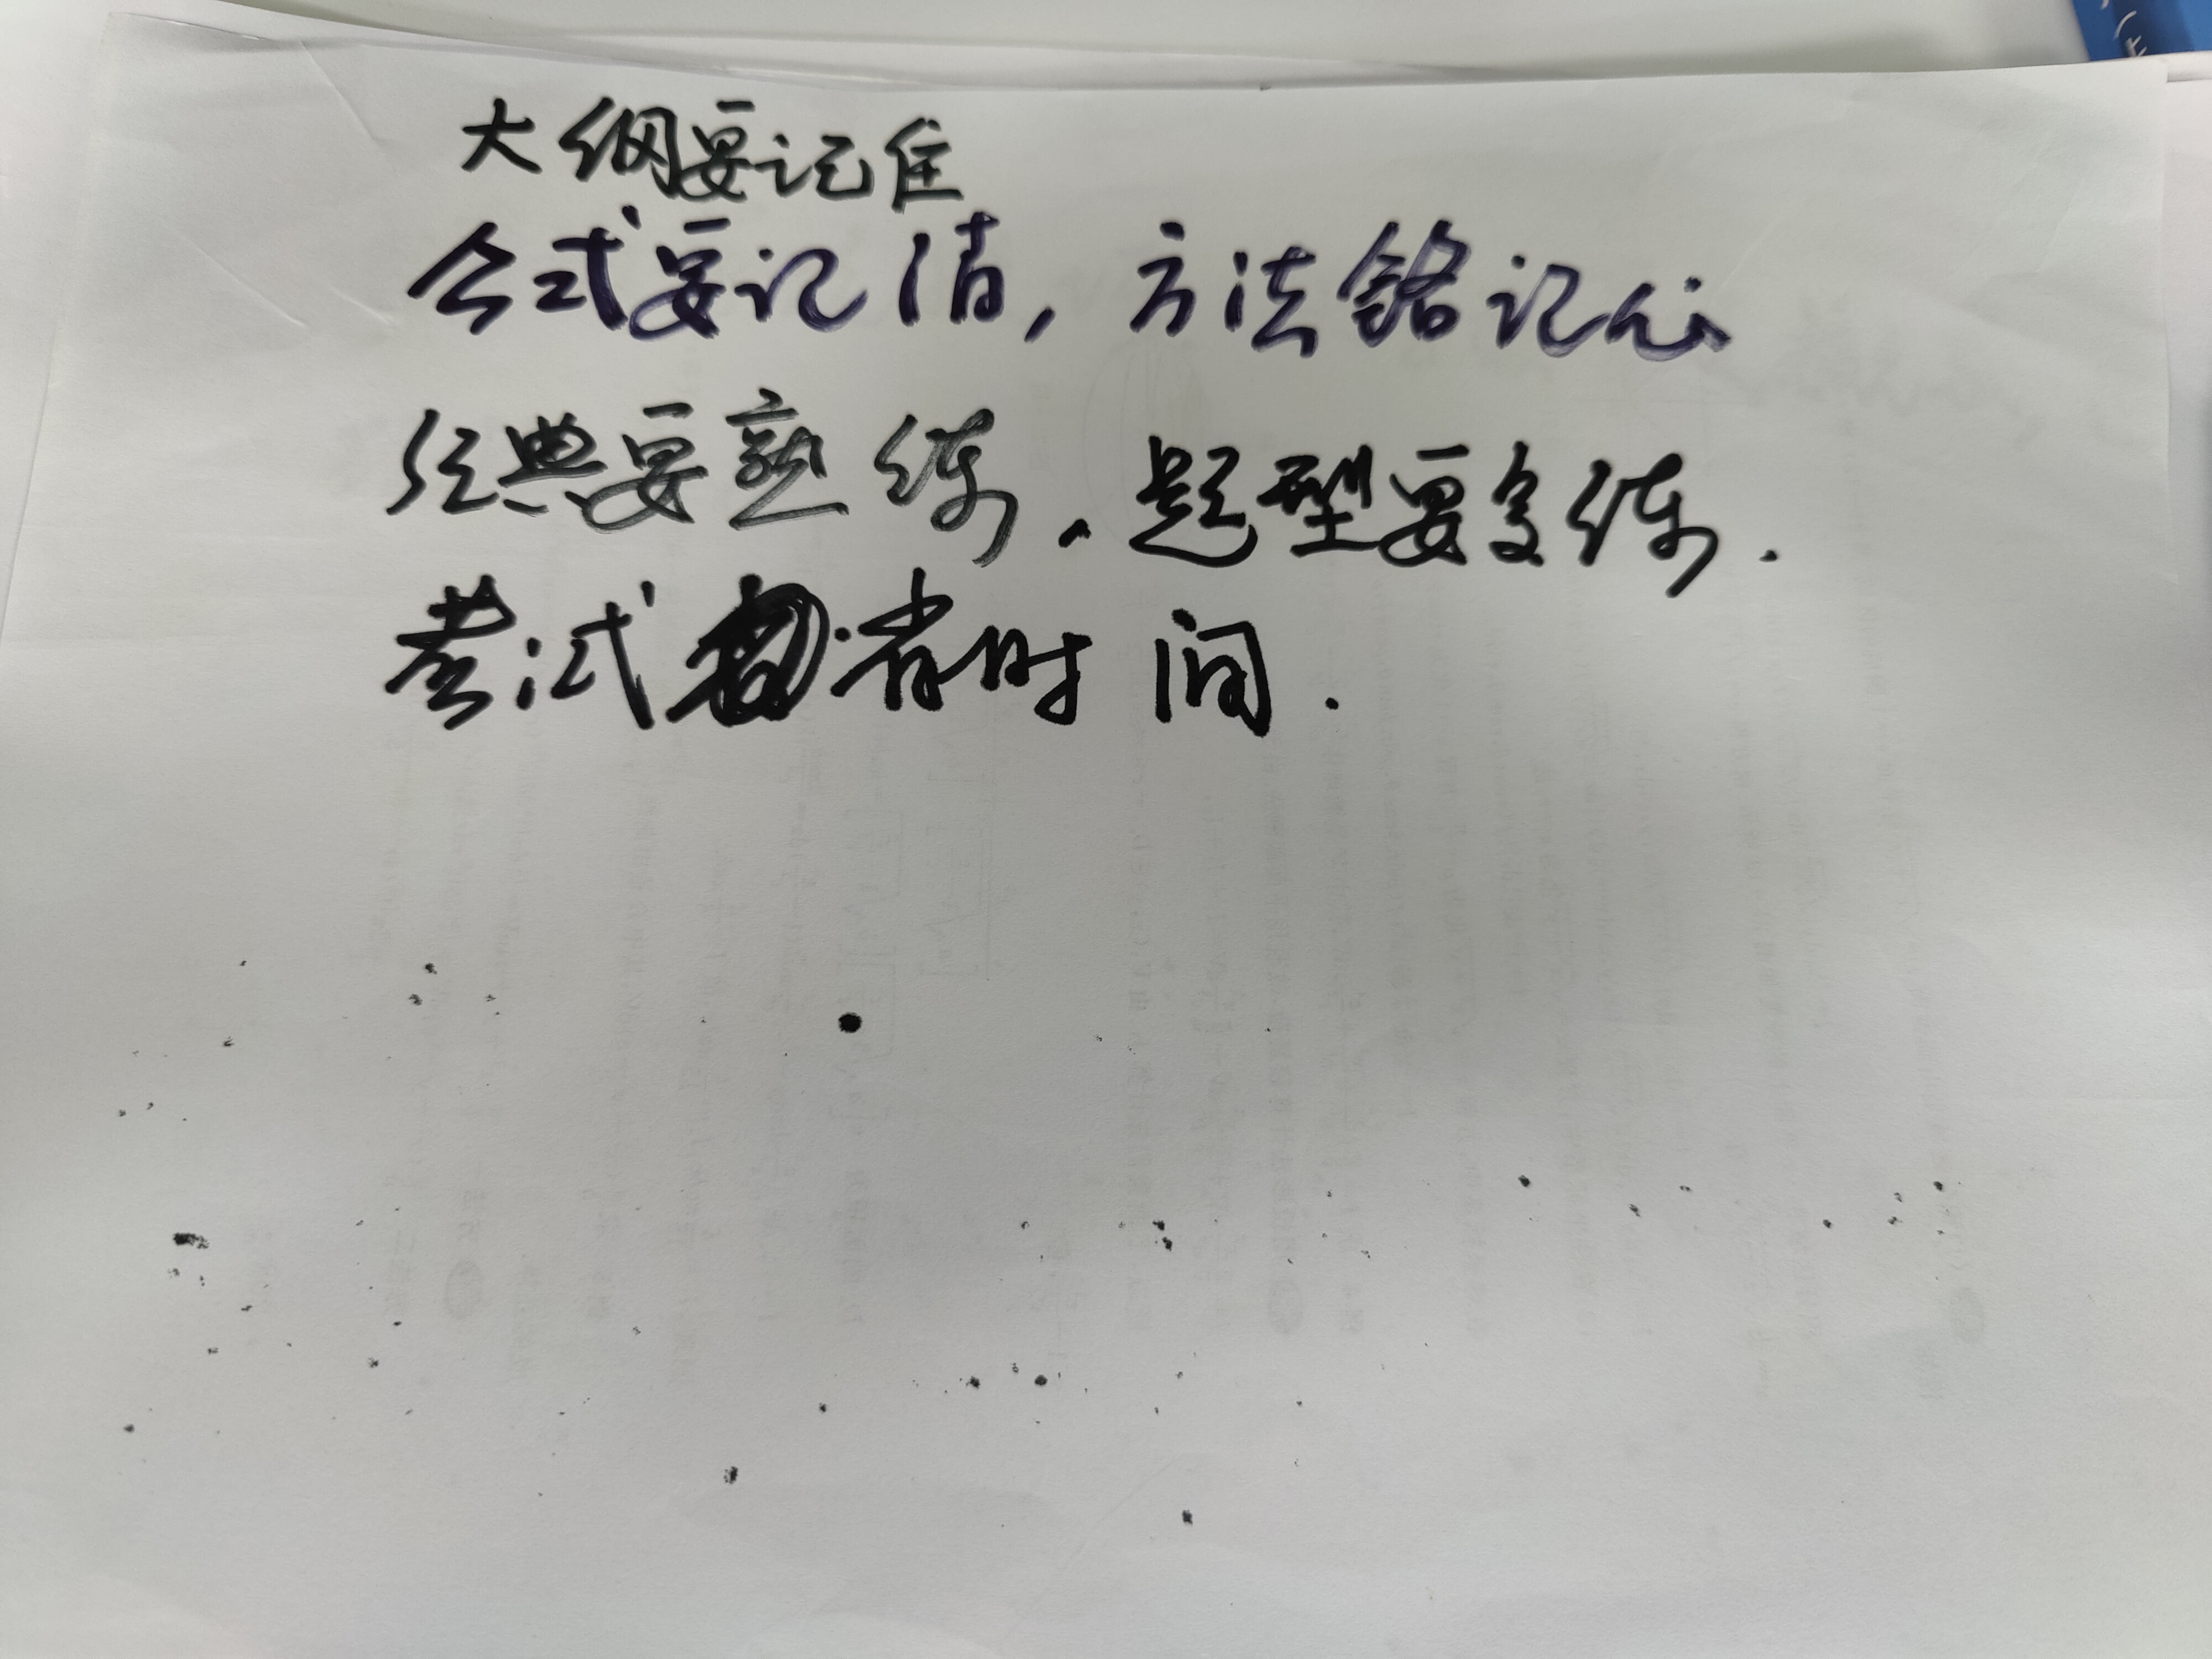 大纲要记住
公式要记清，方法铭记心
经典要熟练，题型要多练.
考试省时间.